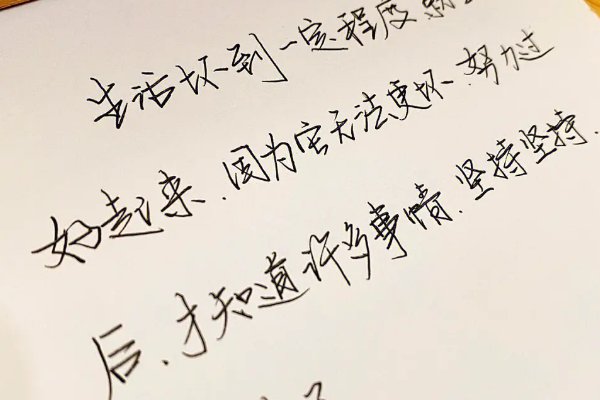 生活坏到一定程度就
好起来,因为它无法更坏.努力过
后,才知道许多事情.坚持坚持.